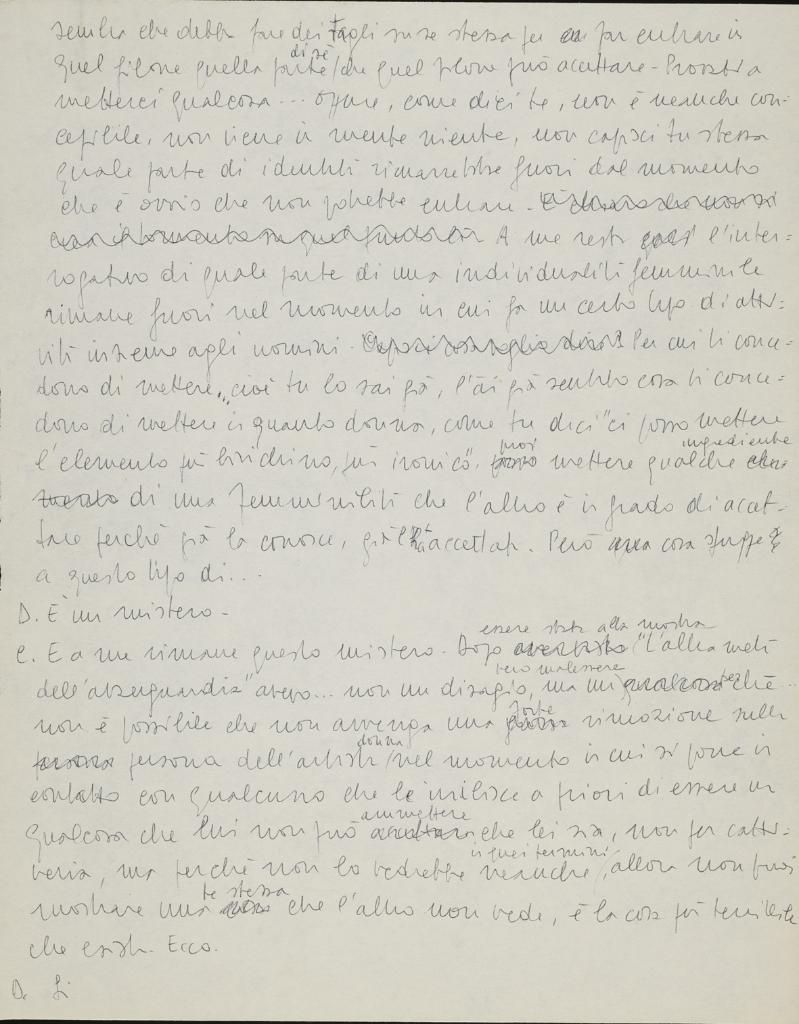 sembra che debba fare dei tagli su se stessa per far entrare in
quel filone quella parte di sé che quel filone può accettare - Provati a
metterci qualcosa... oppure, come dici te, non è neanche con-
cepibile, non viene in mente niente, non capisci tu stessa
quale parte di identità rimarrebbe fuori dal momento
che è ovvio che non potrebbe entrare.
A me resta l'inter-
rogativo di quale parte di una individualità femminile
rimane fuori nel momento in cui fa un certo tipo di atti-
vità insieme agli uomini. Per cui ti conce-
dono di mettere, cioè tu lo sai già, l'hai già sentito cosa ti conce-
dono di mettere in quanto donna, come tu dici "ci posso mettere
l'elemento più birichino, più ironico". puoi mettere qualche ingrediente
di una femminilità che l'altro è in grado di accet-
tare perché già la conosce, già l'ha accettata. Però una cosa sfugge
a questo tipo di...
D. È un mistero -
C. E a me rimane questo mistero. Dopo essere stata alla mostra "L'altra metà
dell'avanguardia" avevo... non un disagio, ma un vero malessere perché
non è possibile che non avvenga una forte rimozione sulla
persona dell'artista donna nel momento in cui si pone in
contatto con qualcuno che le inibisce a priori di essere un
qualcosa che lui non può ammettere che lei sia, non per catti-
veria, ma perché non lo vedrebbe neanche in quei termini, allora non puoi
mostrare una te stessa che l'altro non vede, è la cosa più terribile
che esista. Ecco.
D. Sì